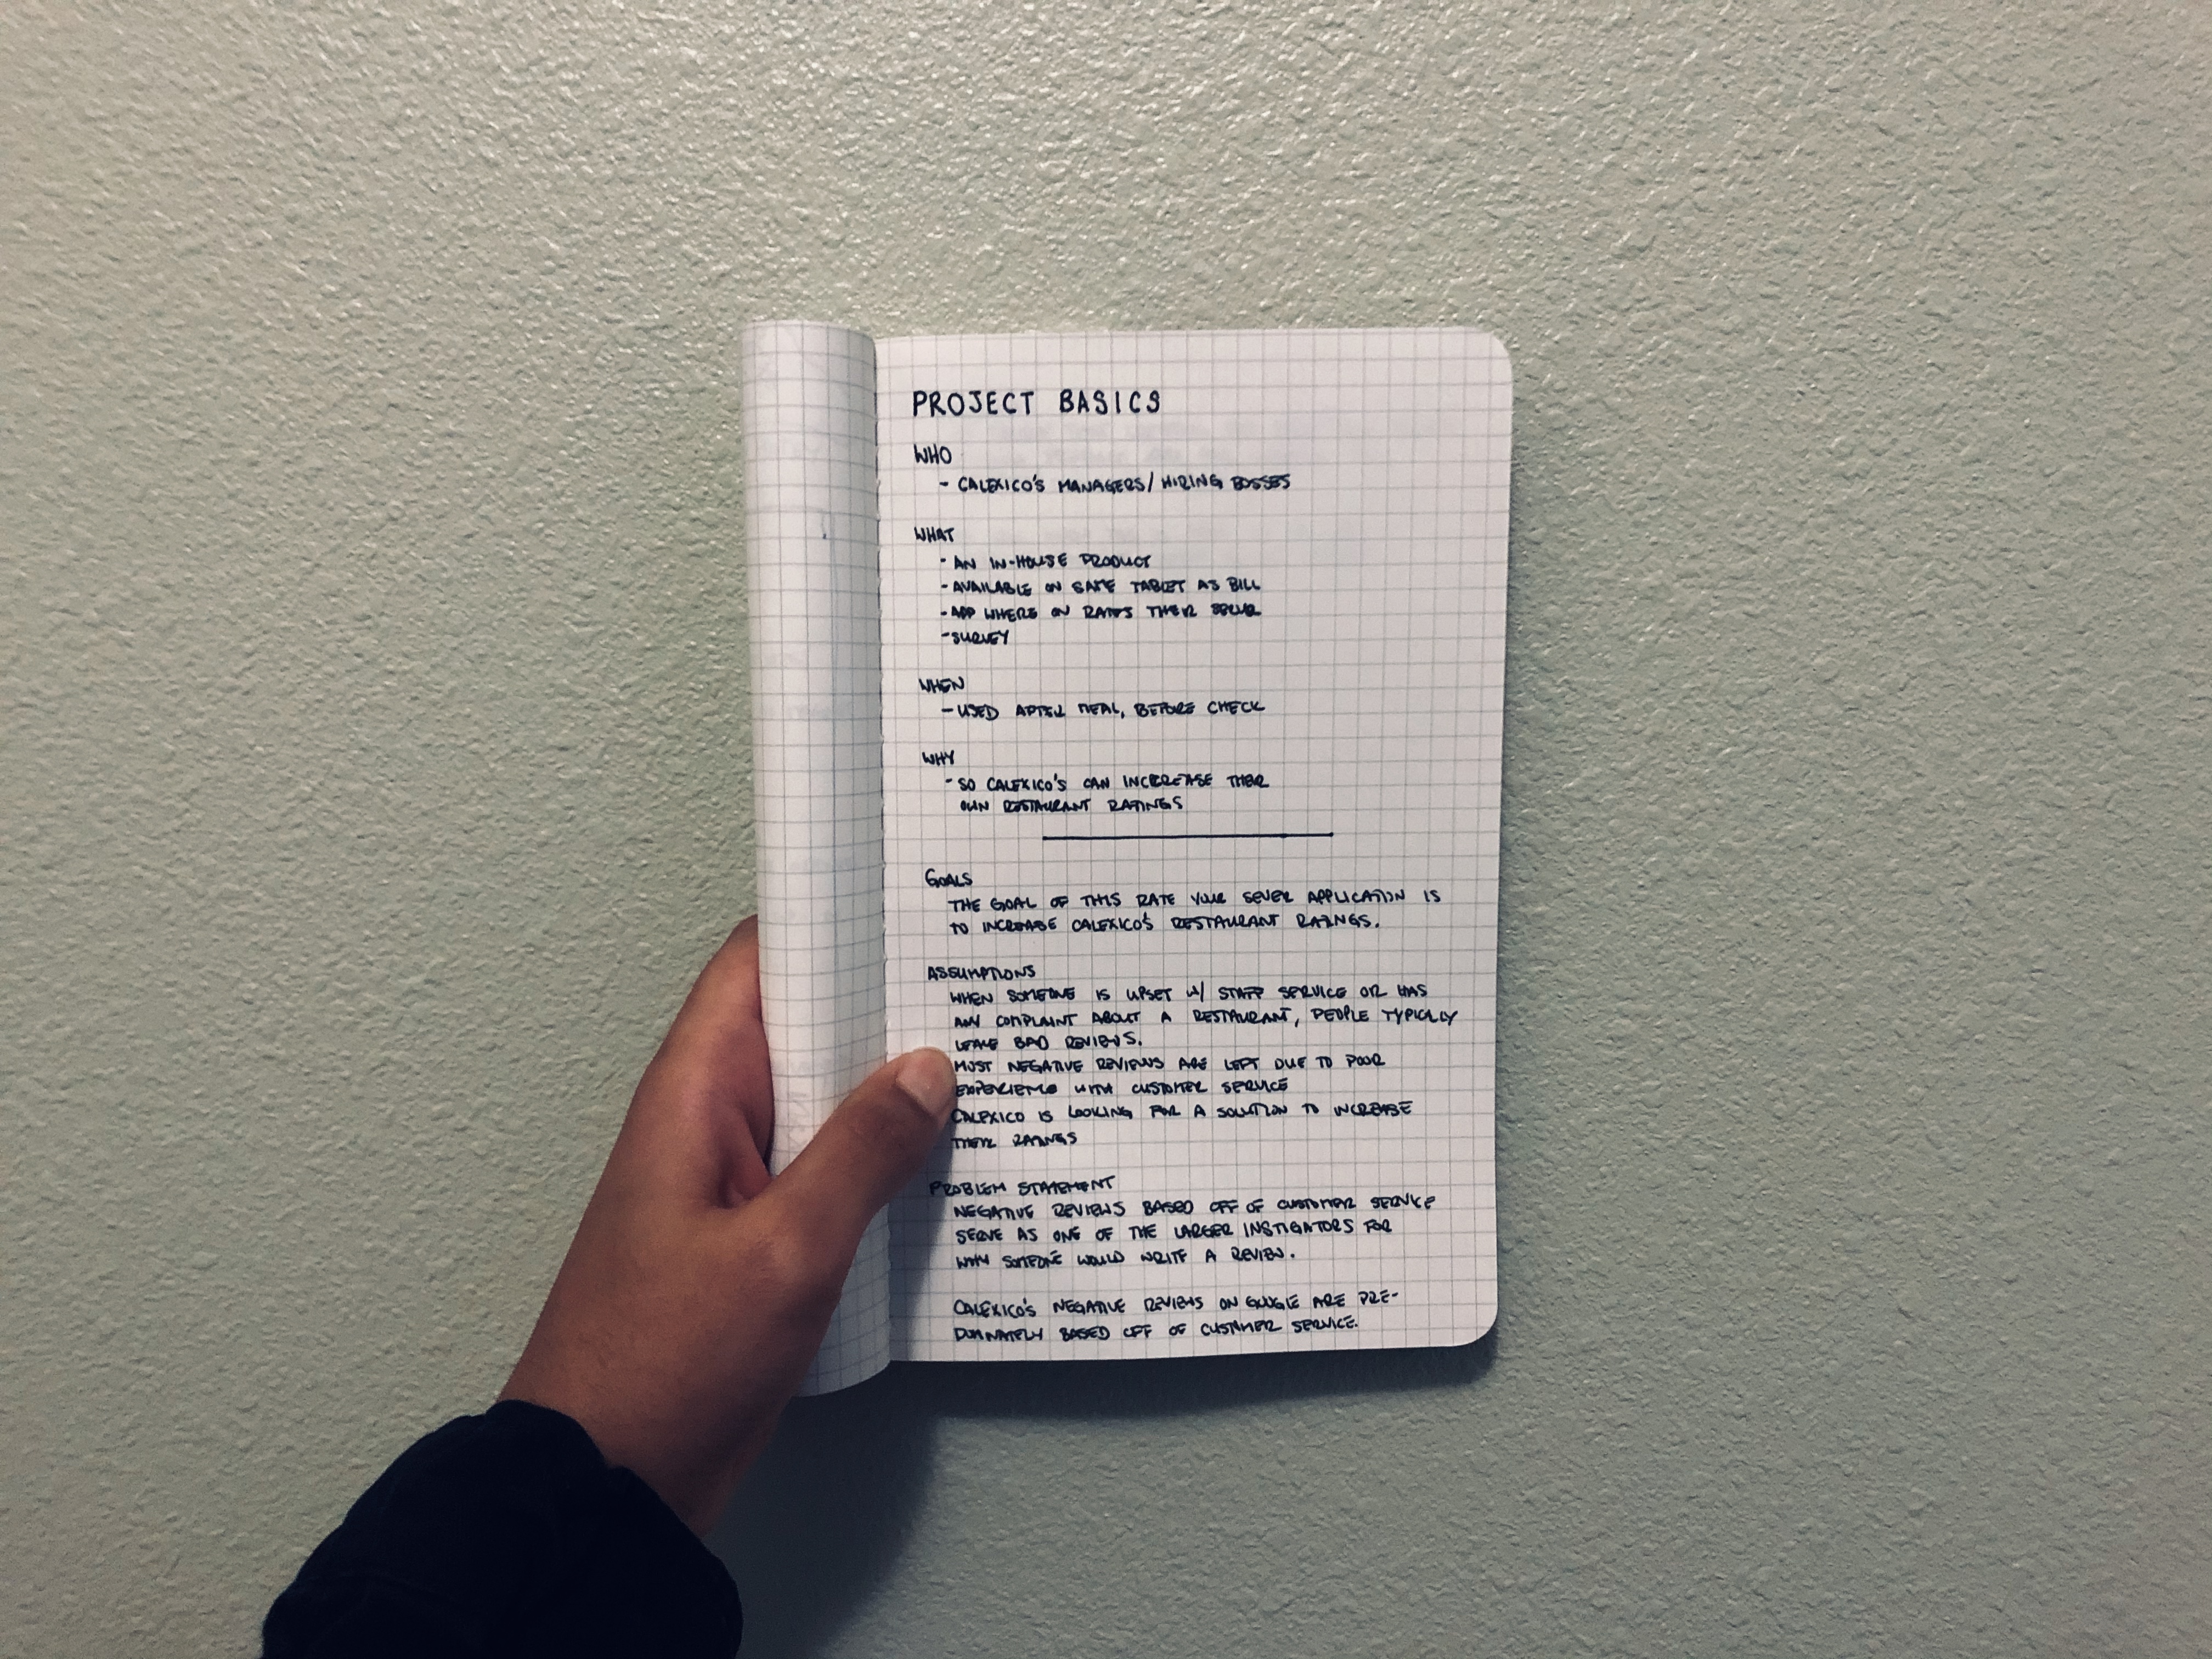 PROJECT BASICS
WHO
- CALEXICO'S MANAGERS/HIRING BOSSES
WHAT
- AN IN-HOUSE PRODUCT
- AVAILABLE ON SAME TABLET AS BILL
- APP WHERE ON RATES THEIR
- SURVEY
WHEN
- USED AFTER MEAL, BEFORE CHECK
WHY
- SO CALEXICO'S CAN INCREASE THEIR
OWN RESTAURANT RATINGS
GOALS
THE GOAL OF THIS RATE YOUR SEVER APPLICATION IS
TO INCREASE CALEXICO'S RESTAURANT RATINGS.
ASSUMPTIONS
WHEN SOMEONE IS UPSET W/ STAFF SERVICE OR HAS
ANY COMPLAINT ABOUT A RESTAURANT, PEOPLE TYPICALLY
LEAVE BAD REVIEWS.
MOST NEGATIVE REVIEWS ARE LEFT DUE TO POOR
WITH CUSTOMER SERVICE
CALEXICO IS LOOKING FOR A SOLUTION TO INCREASE
THEIR RATINGS
PROBLEM STATEMENT
NEGATIVE REVIEWS BASED OFF OF CUSTOMER SERVICE
SERVE AS ONE OF THE LARGER INSTIGATORS FOR
WHY SOMEONE WOULD WRITE A REVIEW.
CALEXICO'S NEGATIVE REVIEWS ON GOOGLE ARE PRE-
DOMINATELY BASED OFF OF CUSTOMER SERVICE.